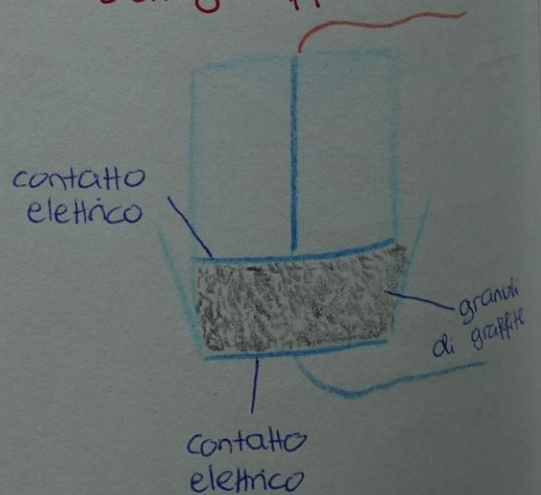 contatto
elettrico
granuli
di graffite
contatto
elettrico